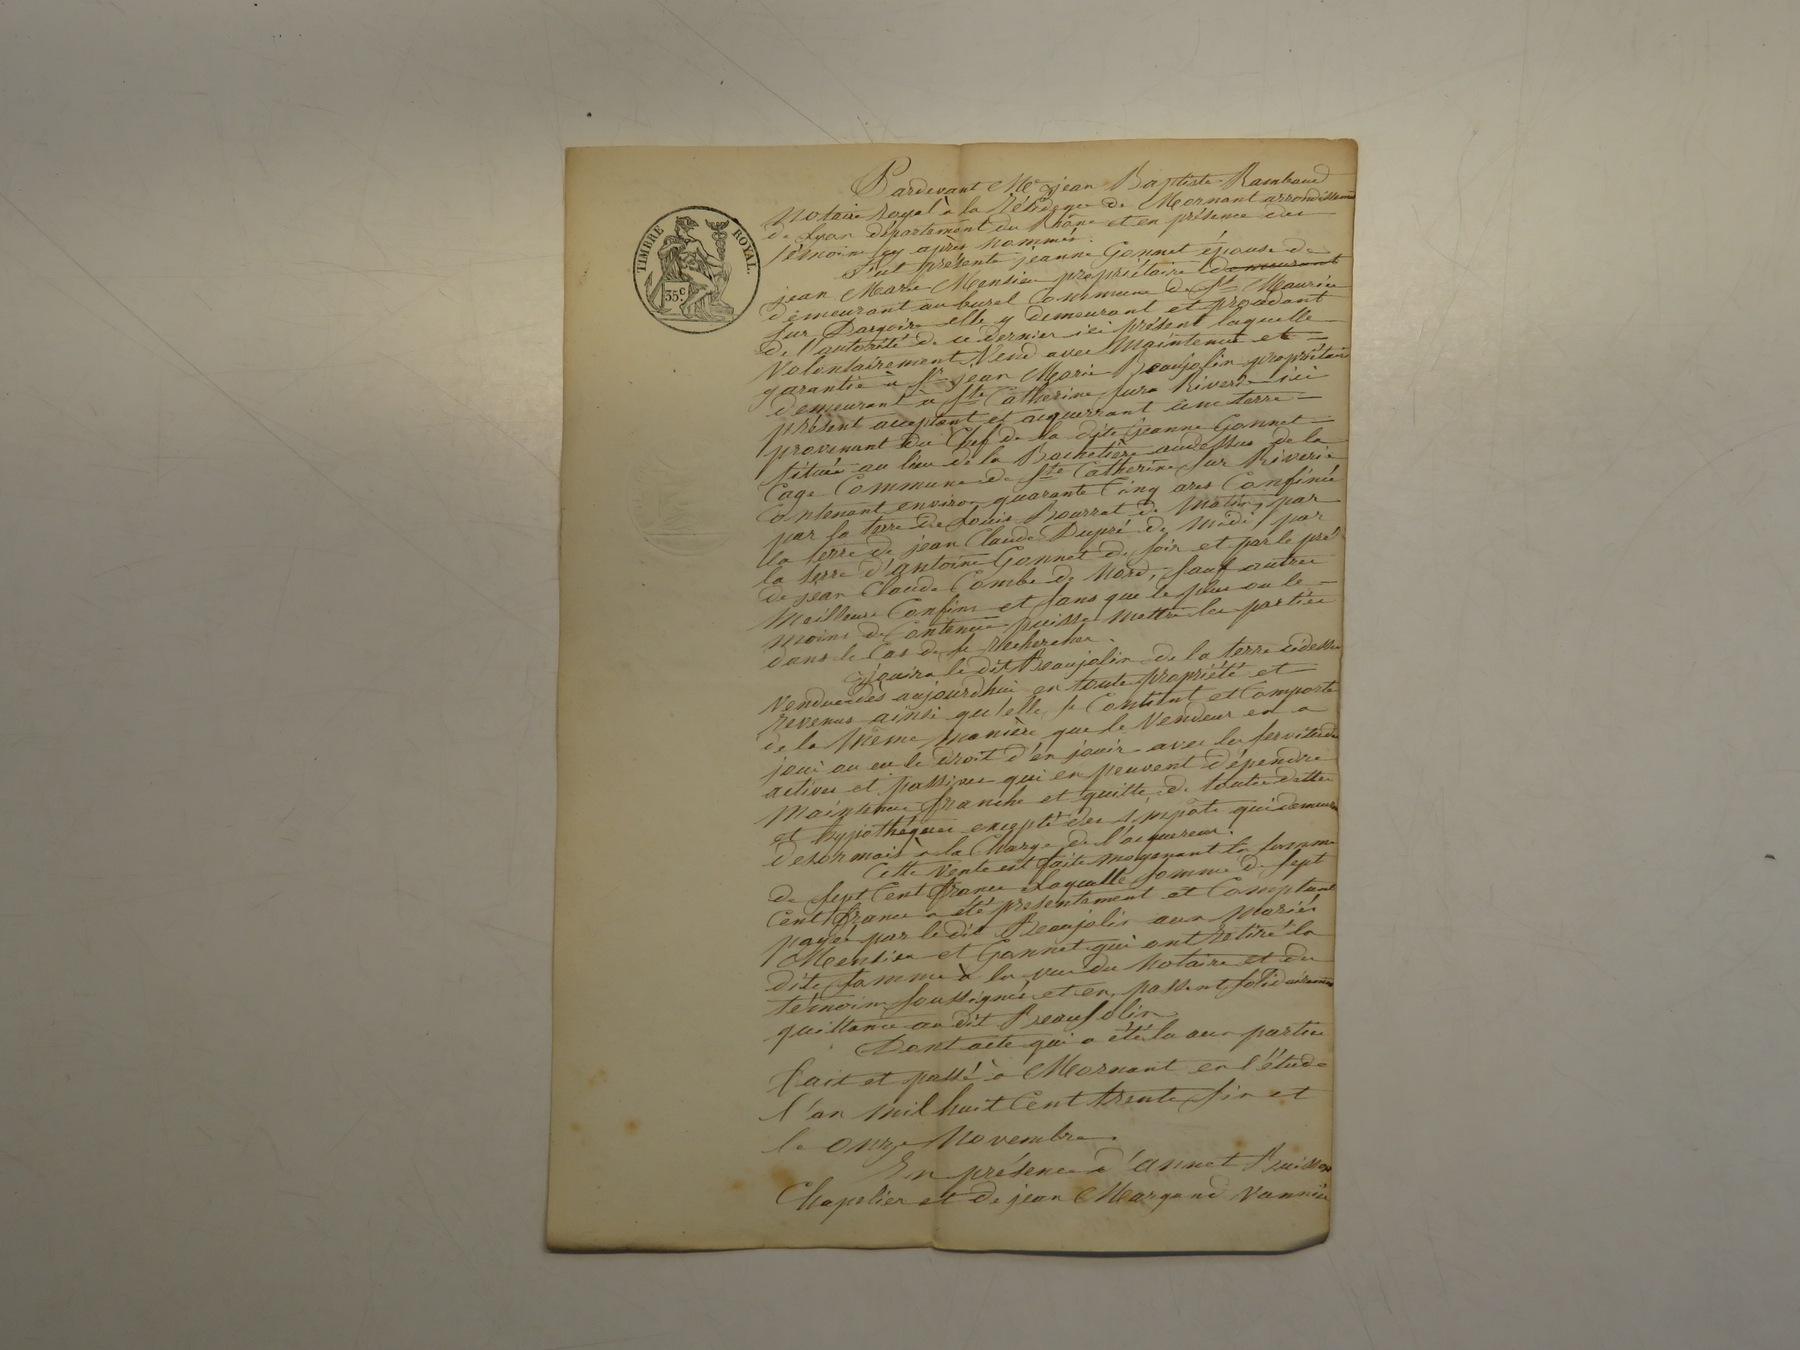 TIMBRE ROYAL.
35c
Pardevant Me jean Baptiste Rambaud
Notaire Royal à la Résidence de Mornant arrondissement
de Lyon département du Rhône et en présence des
témoins cy après nommés.
Fut présente jeanne Gonnet épouse de
jean Marie Mensieu propriétaire demeurant
demeurant au burel Commune de St Maurice
sur Dargoire elle y demeurant et procédant
de l'autorité de ce dernier ici présent laquelle
Volontairement Vend avec Maintenue et
garantie à Sr jean Marie Beaujolin propriétaire
demeurant à Ste Catherine sura Riverie ici
présent acceptant et acquerrant une terre
provenant du Chef de la dite jeanne Gonnet
située au lieu de la Bachetière audessus de la
Cage Commune de Ste Catherine sur Riverie
Contenant environ quarante Cinq ares Confinée
par la terre de Louis Bourrat de Matin, par
la terre de jean Claude Dupré de Midi, par
la terre d'antoine Gonnet de soir et par le pré
de jean Claude Combe de Nord, sauf autres
Meilleurs Confins et sans que le plus ou le
moins de Contenue puisse mettre les parties
dans le Cas de se Rechercher.
Jouira le dit Beaujolin de la terre cidessus
Vendue dès aujourdhui en toute propriété et
Revenus ainsi qu'elle se Contint et Comporte
de la Même Manière que le Vendeur en a
joui ou eu le droit d'en jouir avec les servitudes
actives et passives qui en peuvent dépendre
Maintenue franche et quitte de toutes dettes
et hypothéques excepté des impots qui demeurent
désormais à la Charge de l'acquereur.
Cette Vente est faite moyenant la somme
de Sept Cent francs laquelle somme de Sept
Cent francs a été présentement et Comptant
payée par le dit Beaujolin aux Mariés
Mensieu et Gonnet qui ont Retiré la
dite somme à la vue du Notaire et des
témoins soussignés et en passent solidairement
quittance au dit Beaujolin.
Dont acte qui a été lu aux parties
fait et passé à Mornant en l'étude
l'an mil huit Cent trente six et
le onze Novembre.
En présence d'annet Buisson
Chapelier et de jean Margand Vannier